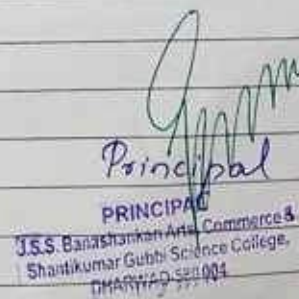 Principal
PRINCIPAL
J.S.S. Banashankari Arts, Commerce &
Shantikumar Gubbi Science College,
DHARWAD-580 004